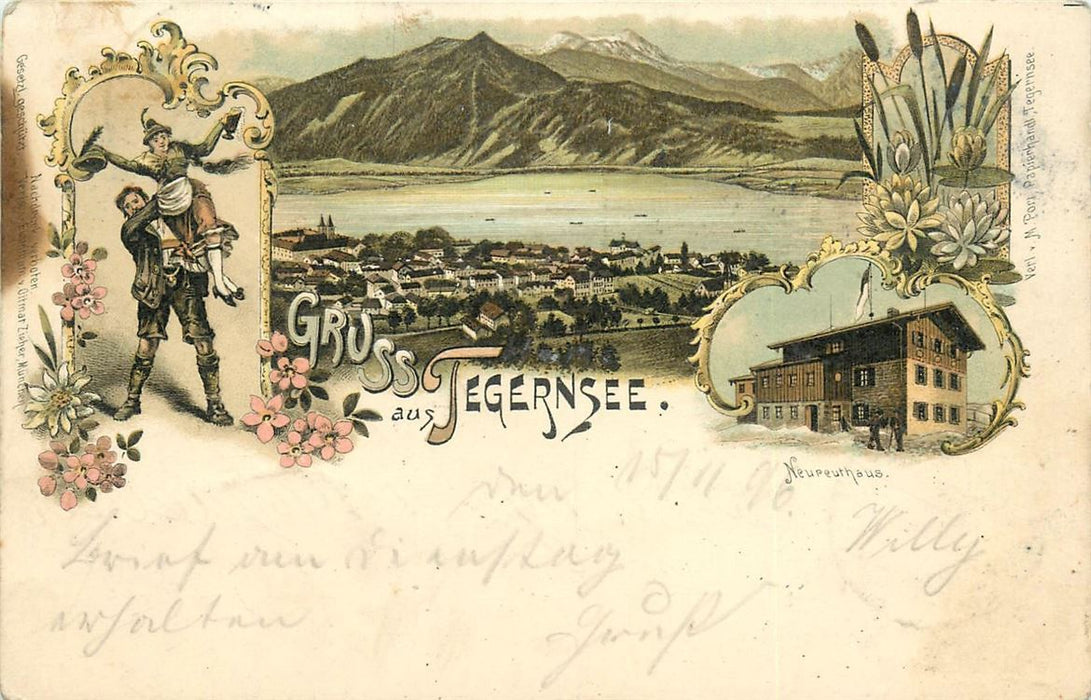 GRUSS
aus TEGERNSEE.
Neureuthaus.
Gesetzl. geschützt.
Nachbildung verboten.
Verl. v. Ottmar Zieher, München
Verl. v. M. Porr, Papierhandl. Tegernsee
den 15/11 96.
Brief am Dienstag
erhalten
Gruß
Willy